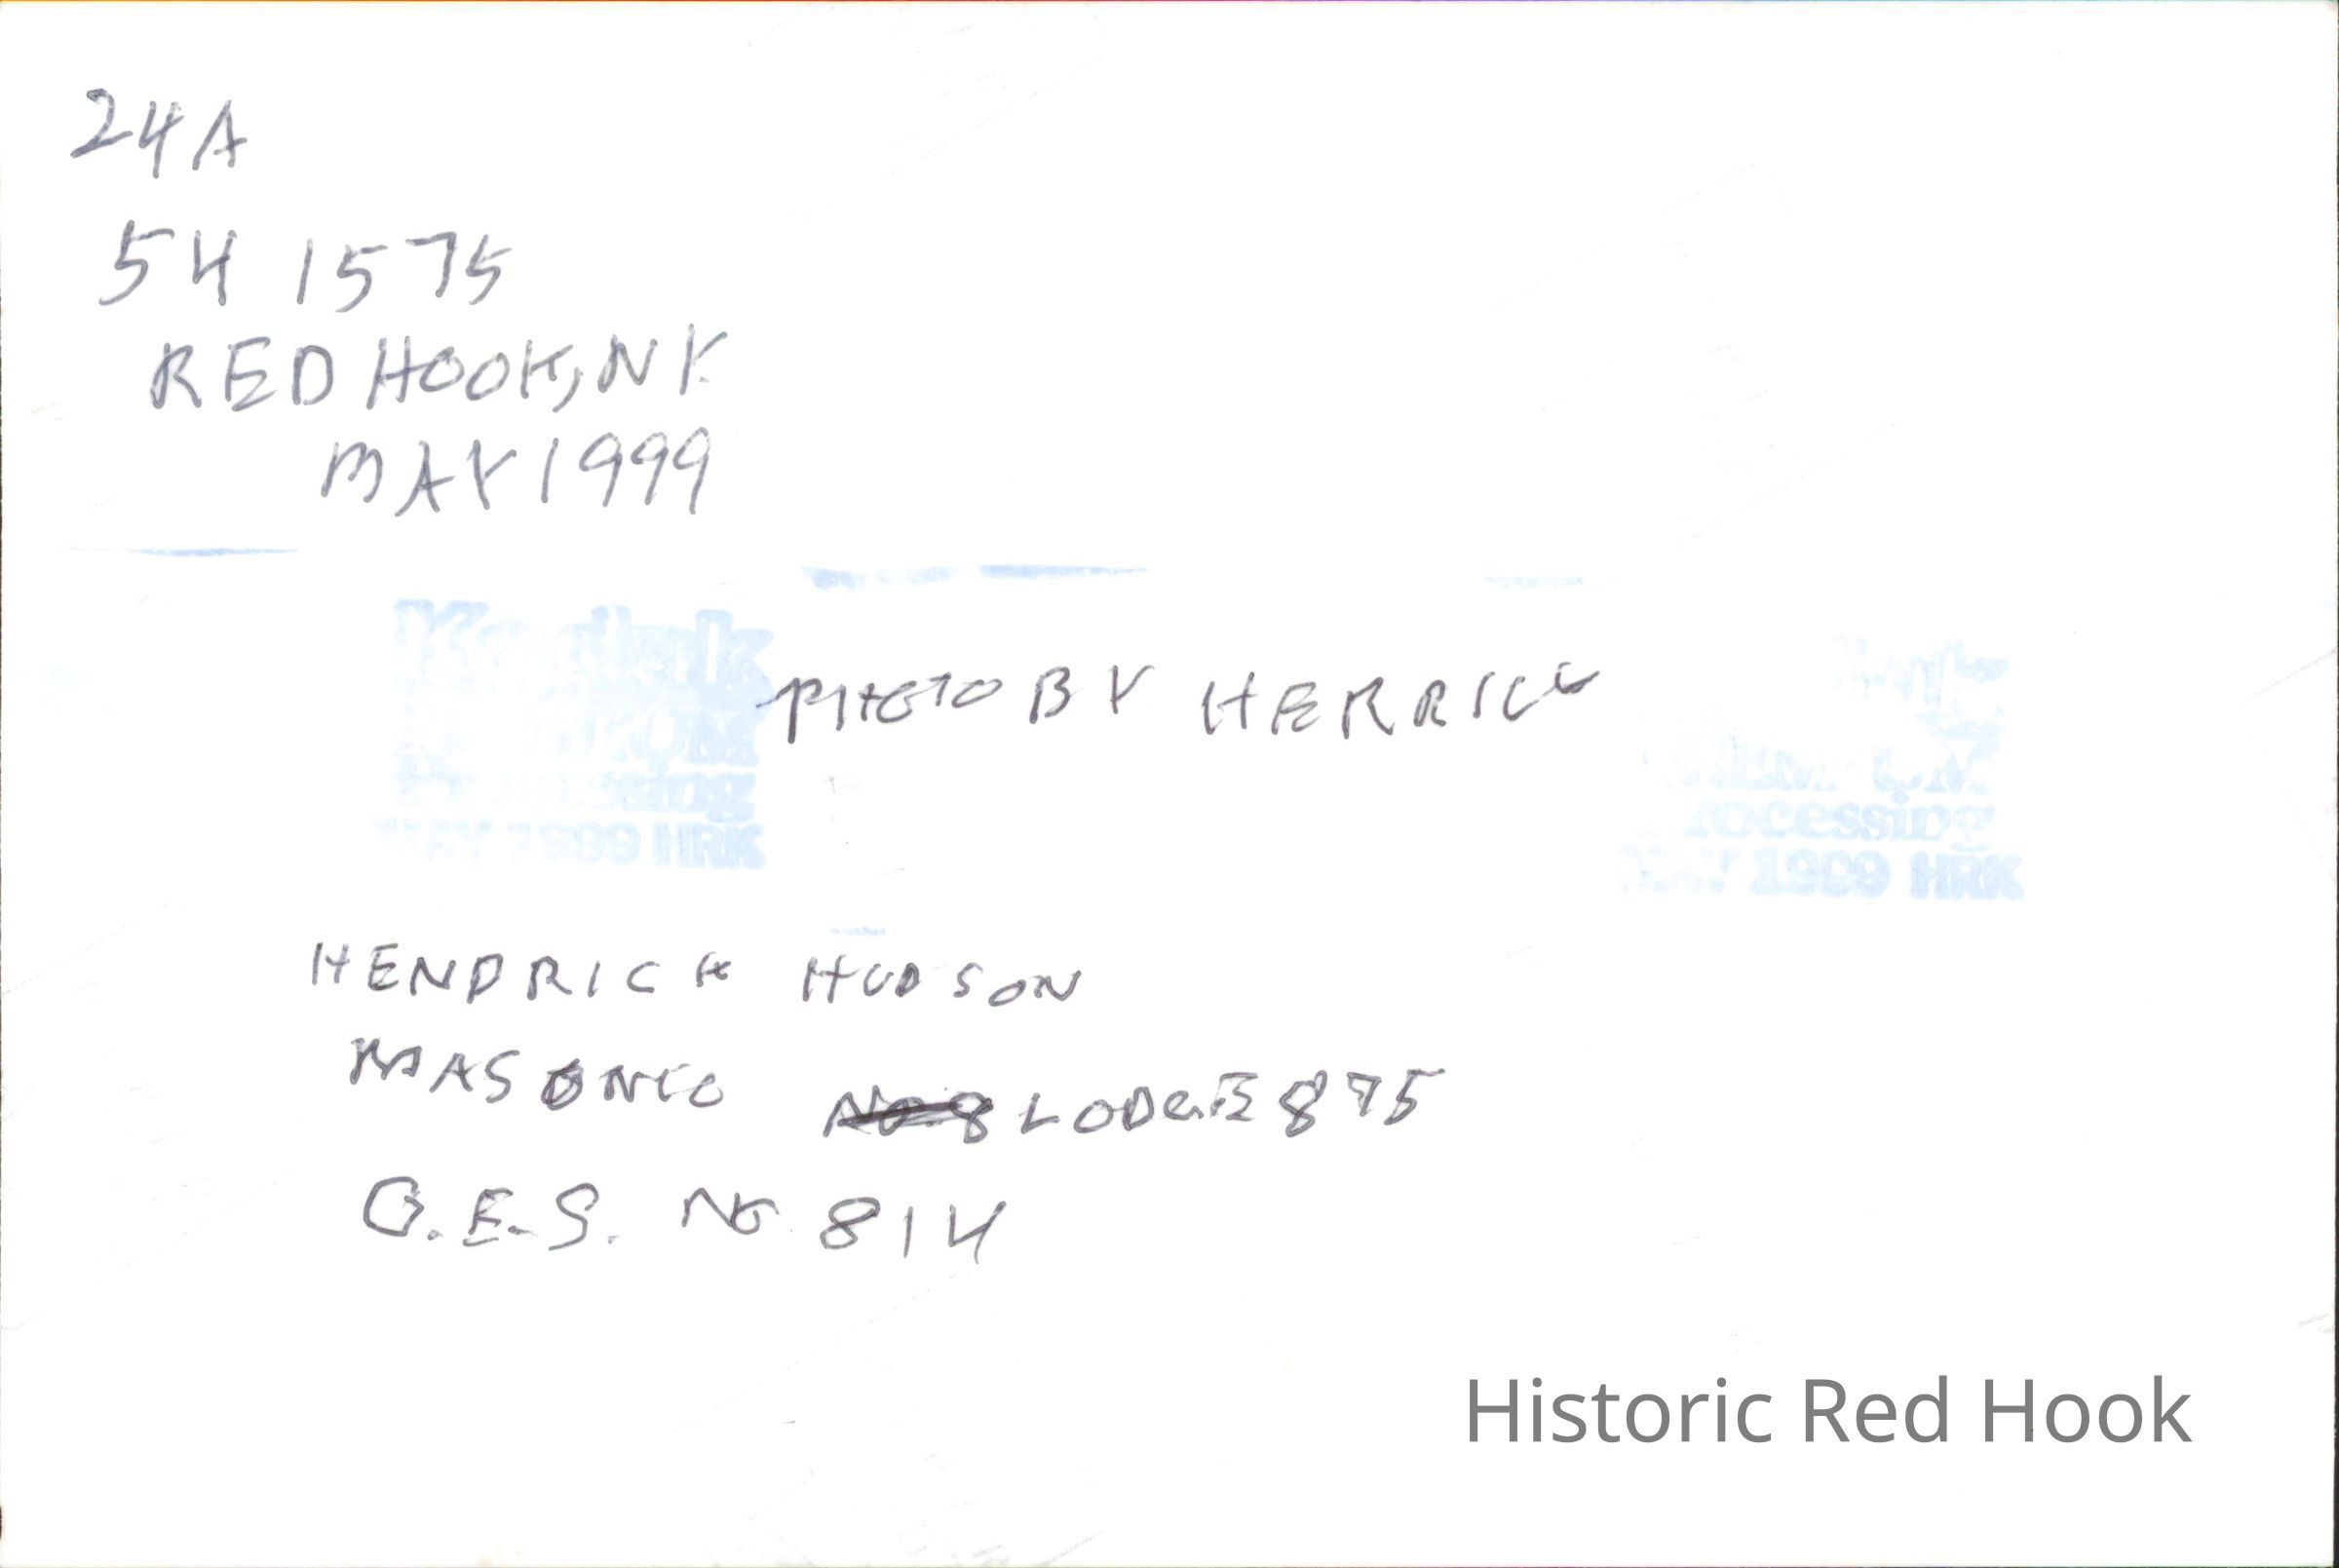 24A
54 1575
RED HOOK, NY.
MAY 1999
Kodak
PHOTO BY HERRICK
Processing
MAY 1999 HRK
Processing
MAY 1999 HRK
HENDRICK HUDSON
MASONIC LODGE 875
O.E.S. No 814
Historic Red Hook